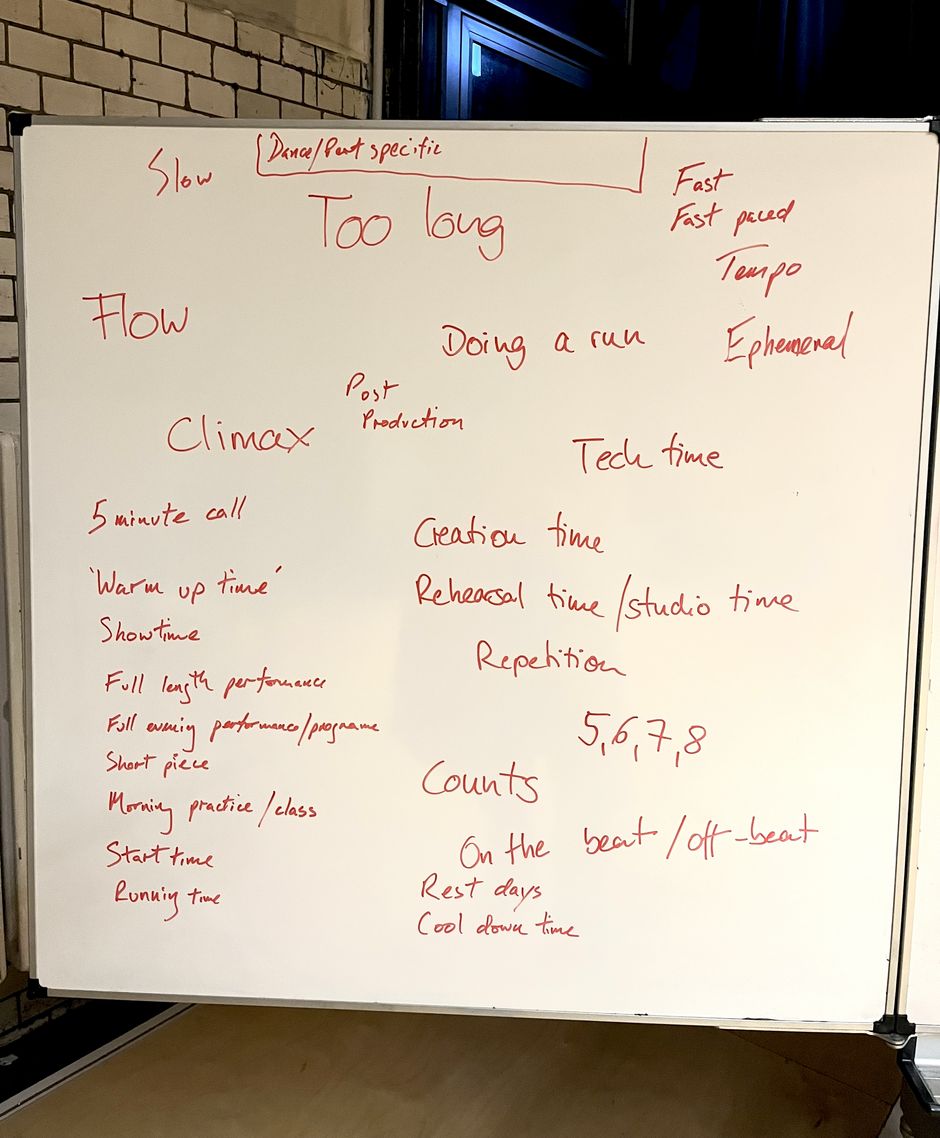 Dance/Perf specific
Slow
Too long
Fast
Fast paced
Tempo
Flow
Doing a run
Ephemeral
Post
Production
Climax
Tech time
5 minute call
Creation time
'Warm up time'
Rehearsal time/studio time
Showtime
Repetition
Full length performance
Full evening performance/programme
5,6,7,8
Short piece
Counts
Morning practice/class
On the beat/off-beat
Start time
Rest days
Running time
Cool down time